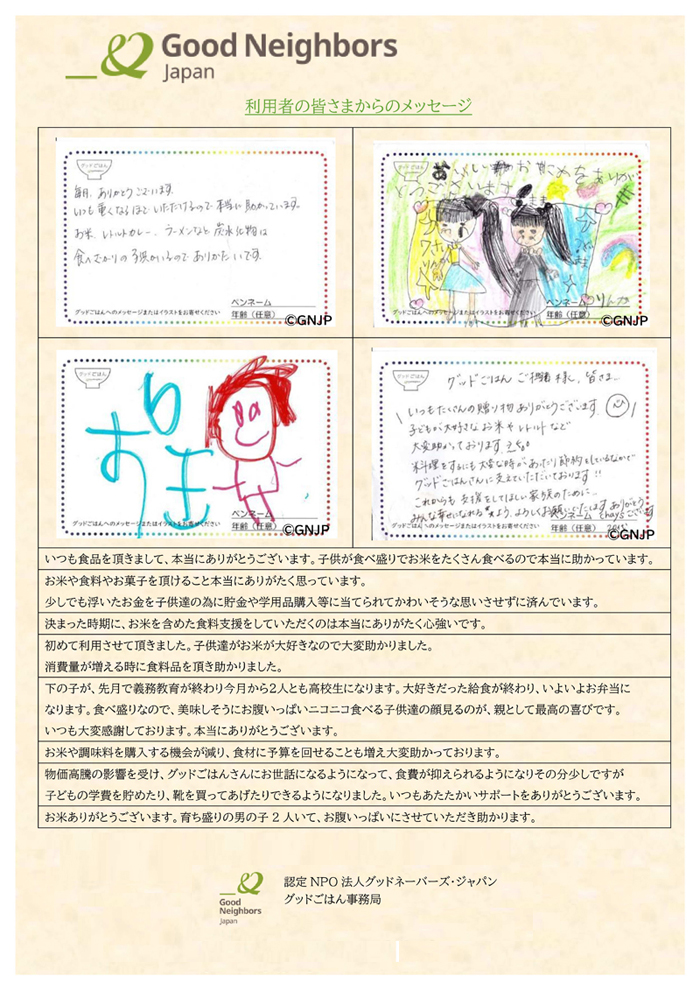 Good Neighbors
Japan
利用者の皆さまからのメッセージ
グッドごはん
毎月、ありがとうございます。
いつも重くなるほどいただけるので本当に助かっています。
お米、レトルトカレー、ラーメンなど炭水化物は
食べざかりの子供がいるのでありがたいです。
ペンネーム
グッドごはんへのメッセージまたはイラストをお寄せください
年齢（任意）
©GNJP
おいしいおこめをありが
とうございます
ペンネーム
グッドごはんへのメッセージまたはイラストをお寄せください
年齢（任意）
©GNJP
グッドごはん
ペンネーム
グッドごはんへのメッセージまたはイラストをお寄せください
年齢（任意）
©GNJP
グッドごはん
グッドごはん ご担当様、皆さま
いつもたくさんの贈り物ありがとうございます
子どもが大好きなお米やレトルトなど
大変助かっております
料理をするにも大変な時があったり節約をしているなかで
グッドごはんさんに支えていただいております!!
これからも支援をしてほしい家族のために
みんな幸せになれるよう、よろしくお願いいたします ありがとうございます
ペンネーム
グッドごはんへのメッセージまたはイラストをお寄せください
年齢（任意）
©GNJP
いつも食品を頂きまして、本当にありがとうございます。子供が食べ盛りでお米をたくさん食べるので本当に助かっています。
お米や食料やお菓子を頂けること本当にありがたく思っています。
少しでも浮いたお金を子供達の為に貯金や学用品購入等に当てられてかわいそうな思いさせずに済んでいます。
決まった時期に、お米を含めた食料支援をしていただくのは本当にありがたく心強いです。
初めて利用させて頂きました。子供達がお米が大好きなので大変助かりました。
消費量が増える時に食料品を頂き助かりました。
下の子が、先月で義務教育が終わり今月から2人とも高校生になります。大好きだった給食が終わり、いよいよお弁当に
なります。食べ盛りなので、美味しそうにお腹いっぱいニコニコ食べる子供達の顔見るのが、親として最高の喜びです。
いつも大変感謝しております。本当にありがとうございます。
お米や調味料を購入する機会が減り、食材に予算を回せることも増え大変助かっております。
物価高騰の影響を受け、グッドごはんさんにお世話になるようになって、食費が抑えられるようになりその分少しですが
子どもの学費を貯めたり、靴を買ってあげたりできるようになりました。いつもあたたかいサポートをありがとうございます。
お米ありがとうございます。育ち盛りの男の子２人いて、お腹いっぱいにさせていただき助かります。
Good
Neighbors
Japan
認定 NPO 法人グッドネーバーズ・ジャパン
グッドごはん事務局